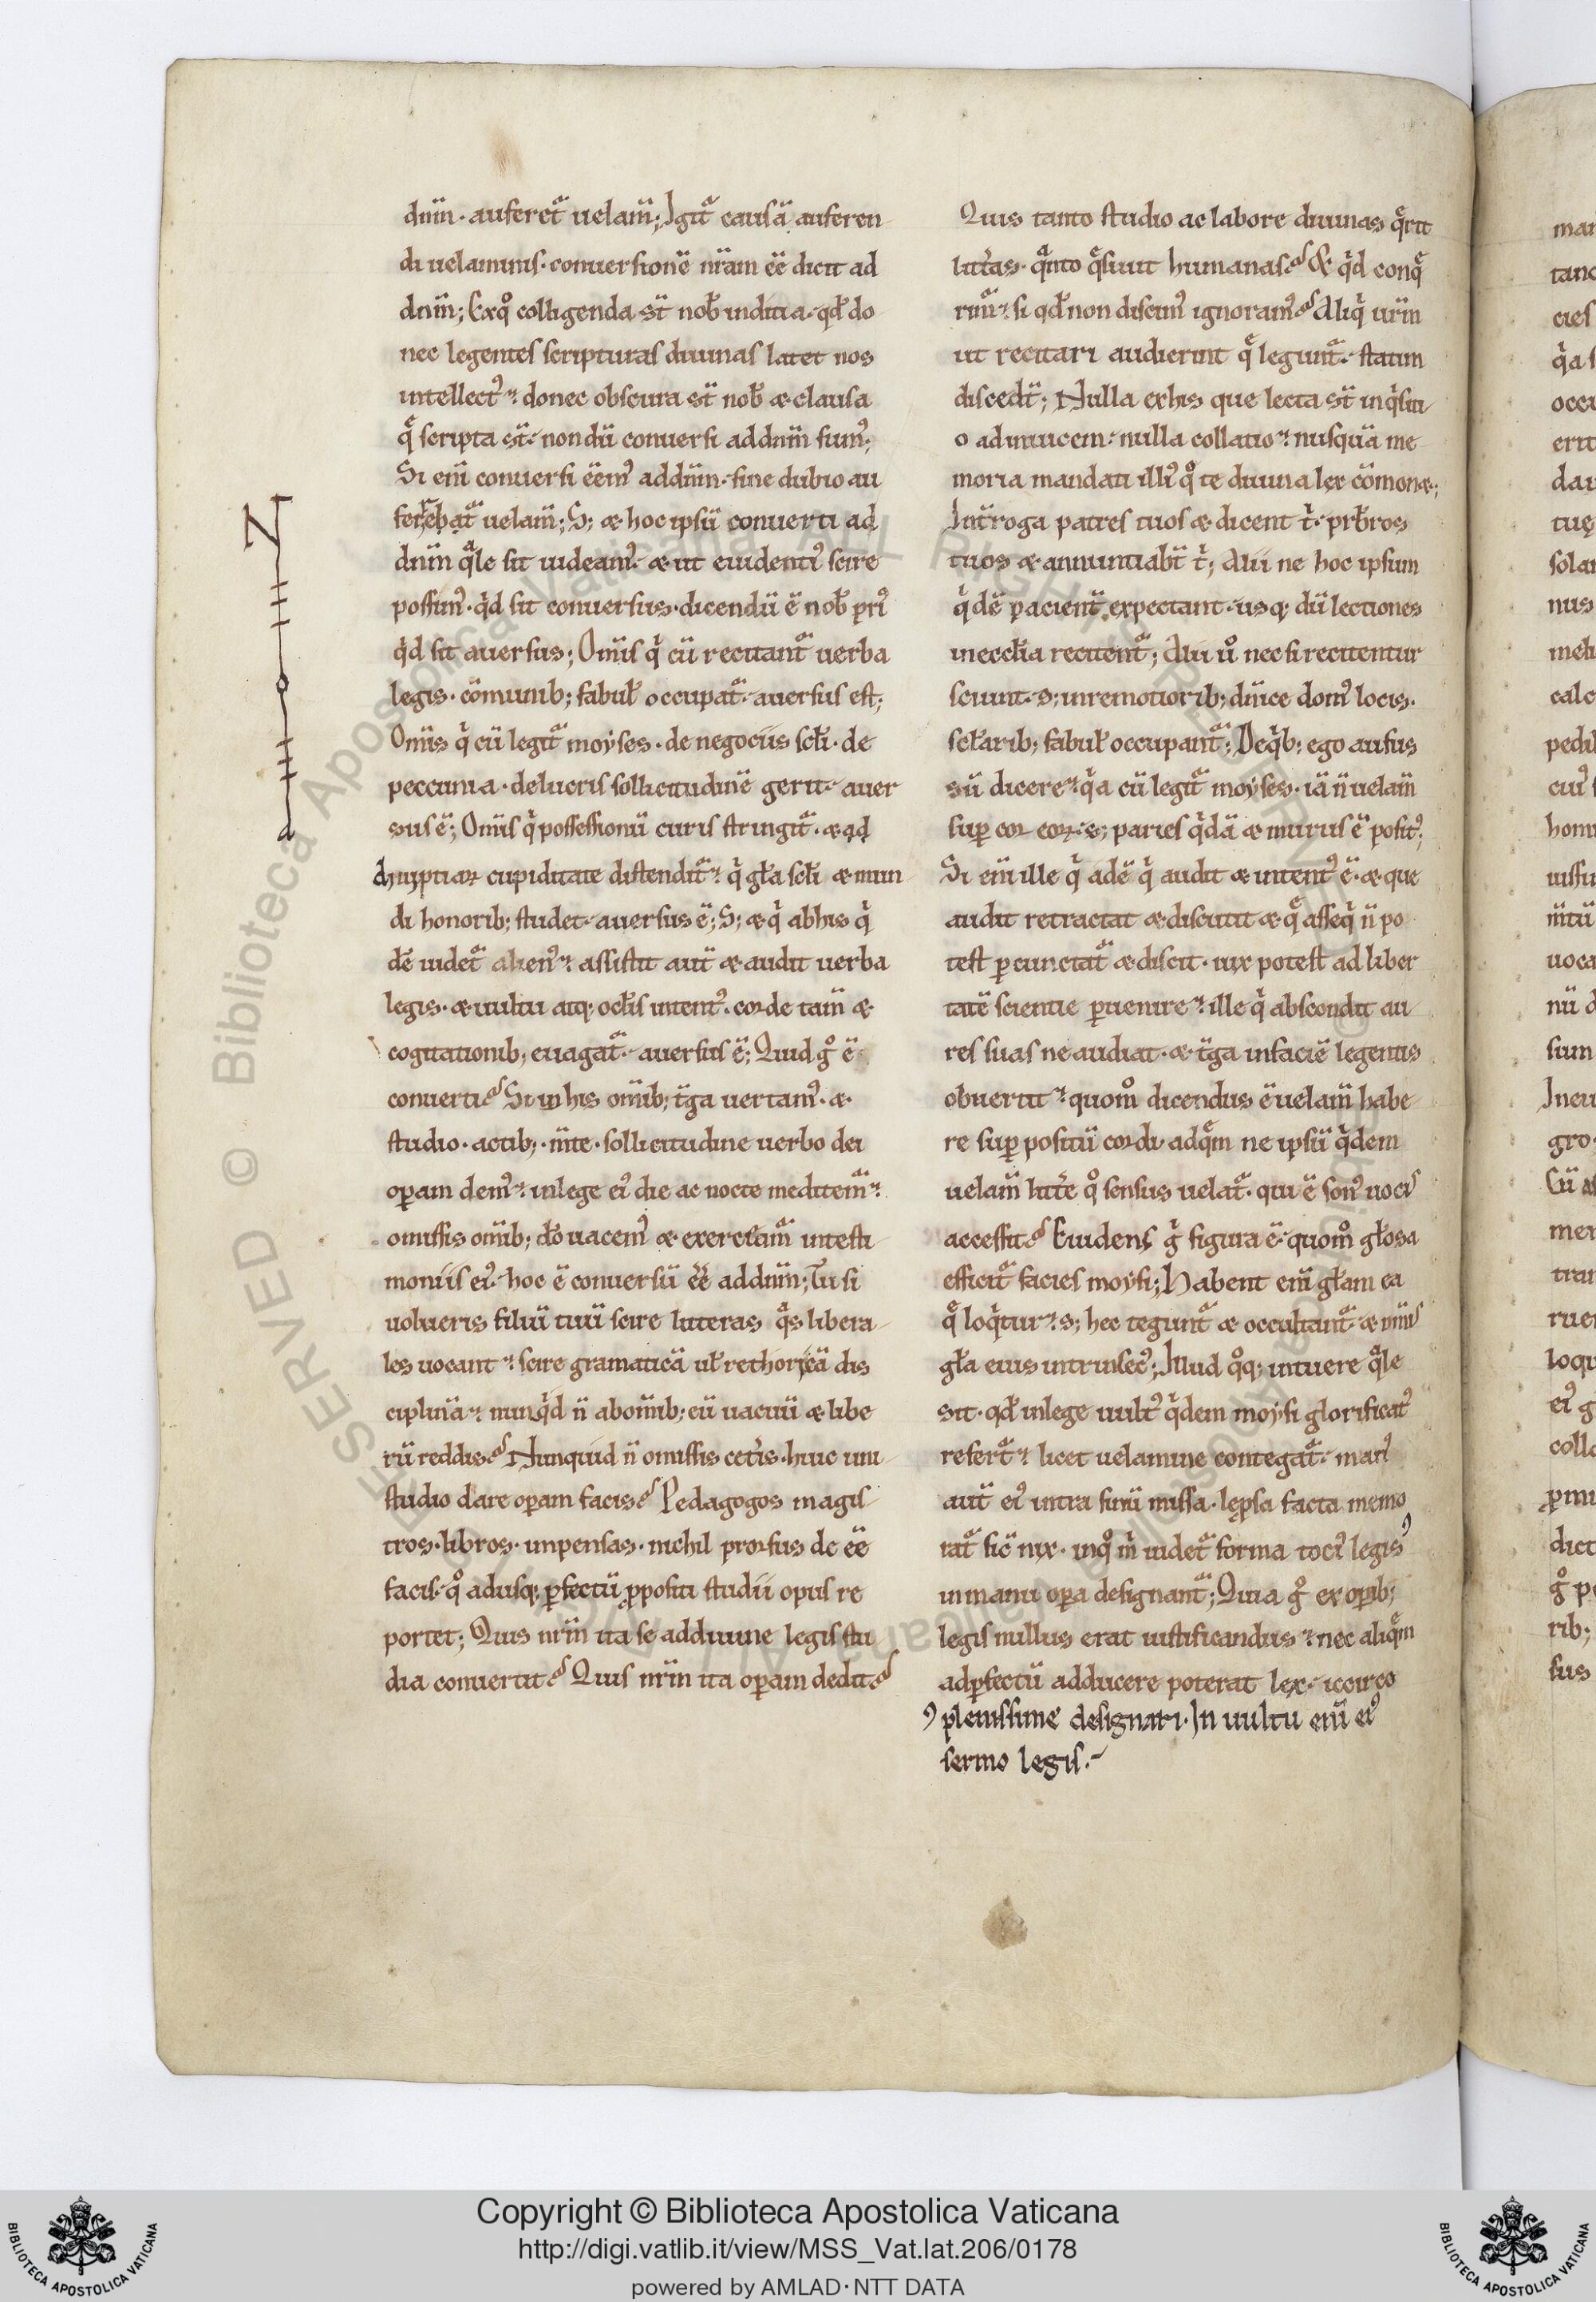 dnm̄· auferet᷑ uelam̄; Igit᷑ causā auferen
di uelaminis· conuersionē nr̄am eē dicit ad
dnm̄; Ex qͦ colligenda st̄ nob̄ inditia· qd̄ do
nec legentes scripturas diuinas latet nos
intellectꝰ· donec obscura st̄ nob̄ & clausa
q̄ scripta st̄· nondū conuersi ad dnm̄ sumꝰ;
Si eni̅ conuersi eēmꝰ ad dnm̄· sine dubio au
ferrebat᷑ uelam̄; S; & hoc ipsū conuerti ad
dnm̄ qͣle sit uideamꝰ· & ut euidentiꝰ scire
possimꝰ· qͥd sit conuersus· dicendū ē nob̄ priꝰ
qͥd sit auersus; Omīs qͥ cū recitant᷑ uerba
legis· cōmunib; fabul̄ occupat᷑· auersus est;
Omīs qͥ cū legit᷑ moyses· de negociis scl̄i· de
peccunia· de lucris sollicitudinē gerit· auer
sus ē; Omīs qͥ possessionū curis stringit᷑· & ad
diuitiaꝝ cupiditate distendit᷑· qͥ gl̄a scl̄i & mun
di honorib; studet· auersus ē; S; & qͥ ab his qͥ
dē uidet᷑ alienꝰ· assistit aut̄ & audit uerba
legis· & uultu atq; ocl̄is intentꝰ· corde tam̄ &
cogitationib; euagat᷑· auersus ē; Quid gͦ ē
conuerti? Si in his omīb; t̄ga uertamꝰ· &
studio· actib;· m̄te· sollicitudine uerbo dei
oꝑam demꝰ· in lege eiꝰ die ac nocte meditem᷑·
omissis omīb; dō uacemꝰ & exerceam᷑ in testi
moniis eiꝰ· hoc ē conuersū eē ad dnm̄; Tu si
uolueris filiū tuū scire litteras qͣs libera
les uocant· scire gramaticā ul̄ rethoricā dis
ciplinā· nunqͥd n̄ ab omīb; eū uacuū & libe
rū reddis? Nunquid n̄ omissis cet̄is· huic uni
studio dare oꝑam facis? Pedagogos magis
tros· libros· inpensas· nichil prorsus de eē
facis· qͦ adusq; ꝑfectū ꝓpositi studii opus re
portet; Quis nr̄m ita se ad diuine legis stu
dia conuertit? Quis nr̄m ita oꝑam dedit?
Quis tanto studio ac labore diuinas q̄rit
litt̄as· qͣnto q̄siuit humanas? & qͥd conq̄
rim᷑· si qd̄ non discimꝰ ignoramꝰ? Aliqͥ ur̄m
ut recitari audierint q̄ legunt᷑· statim
discedt̄; Nulla ex his que lecta st̄ inqͥsiti
o ad inuicem· nulla collatio· nusquā me
moria mandati illiꝰ qͦ te diuina lex cōmonet;
Int̄roga patres tuos & dicent t̄· pr̄bros
tuos & annuntiabt̄ t̄; Alii ne hoc ipsum
qͥdē pacient᷑ expectant· usq; dū lectiones
in eccl̄ia recitent᷑; Alii uͦ nec si recitentur
sciunt· s; in remotiorib; dn̄ice domꝰ locis·
scl̄arib; fabul̄ occupant᷑; De qͥb; ego ausus
sū dicere· qͥa cū legit᷑ moyses· iā n̄ uelam̄
suꝑ cor eoꝝ· s; paries qͥdā & murus ē positꝰ;
Si eni̅ ille qͥ adē qͥ audit & intentꝰ ē· & que
audit retractat & discutit & q̄ asseqͥ n̄ po
test ꝑcunctat᷑ & discit· uix potest ad liber
tatē scientie ꝑuenire· ille qͥ abscondit au
res suas ne audiat· & t̄ga in faciē legentis
obuertit· quomͦ dicendus ē uelam̄ habe
re suꝑ positū cordi· ad qm̄ ne ipsū qͥdem
uelam̄ litt̄e qͦ sensus uelat᷑· qui ē sonꝰ uocis
accessit? Euidens gͦ figura ē· quomͦ gl̄osa
efficit᷑ facies moysi; Habent eni̅ gl̄am ea
q̄ loqͥtur· s; hec tegunt᷑ & occultant᷑· & omīs
gl̄a eius intrinsecꝰ; Illud qͦq; intuere qͣle
sit· qd̄ in lege uultꝰ qͥdem moysi glorificatꝰ
refert᷑· licet uelamine contegat᷑· manꝰ
aut̄ eiꝰ intra sinū missa· leprosa facta memo
rat᷑ sic̄ nix· in qͦ m̄ uidet᷑ forma tociꝰ legis
in manu oꝑa designant᷑; Quia gͦ ex oꝑib;
legis nullus erat iustificandus· nec aliqm̄
ad ꝑfectū adducere poterat lex· iccirco
plenissime designari· In uultu eni̅ eiꝰ
sermo legis·
Copyright © Biblioteca Apostolica Vaticana
http://digi.vatlib.it/view/MSS_Vat.lat.206/0178
powered by AMLAD·NTT DATA
BIBLIOTECA APOSTOLICA VATICANA
BIBLIOTECA APOSTOLICA VATICANA